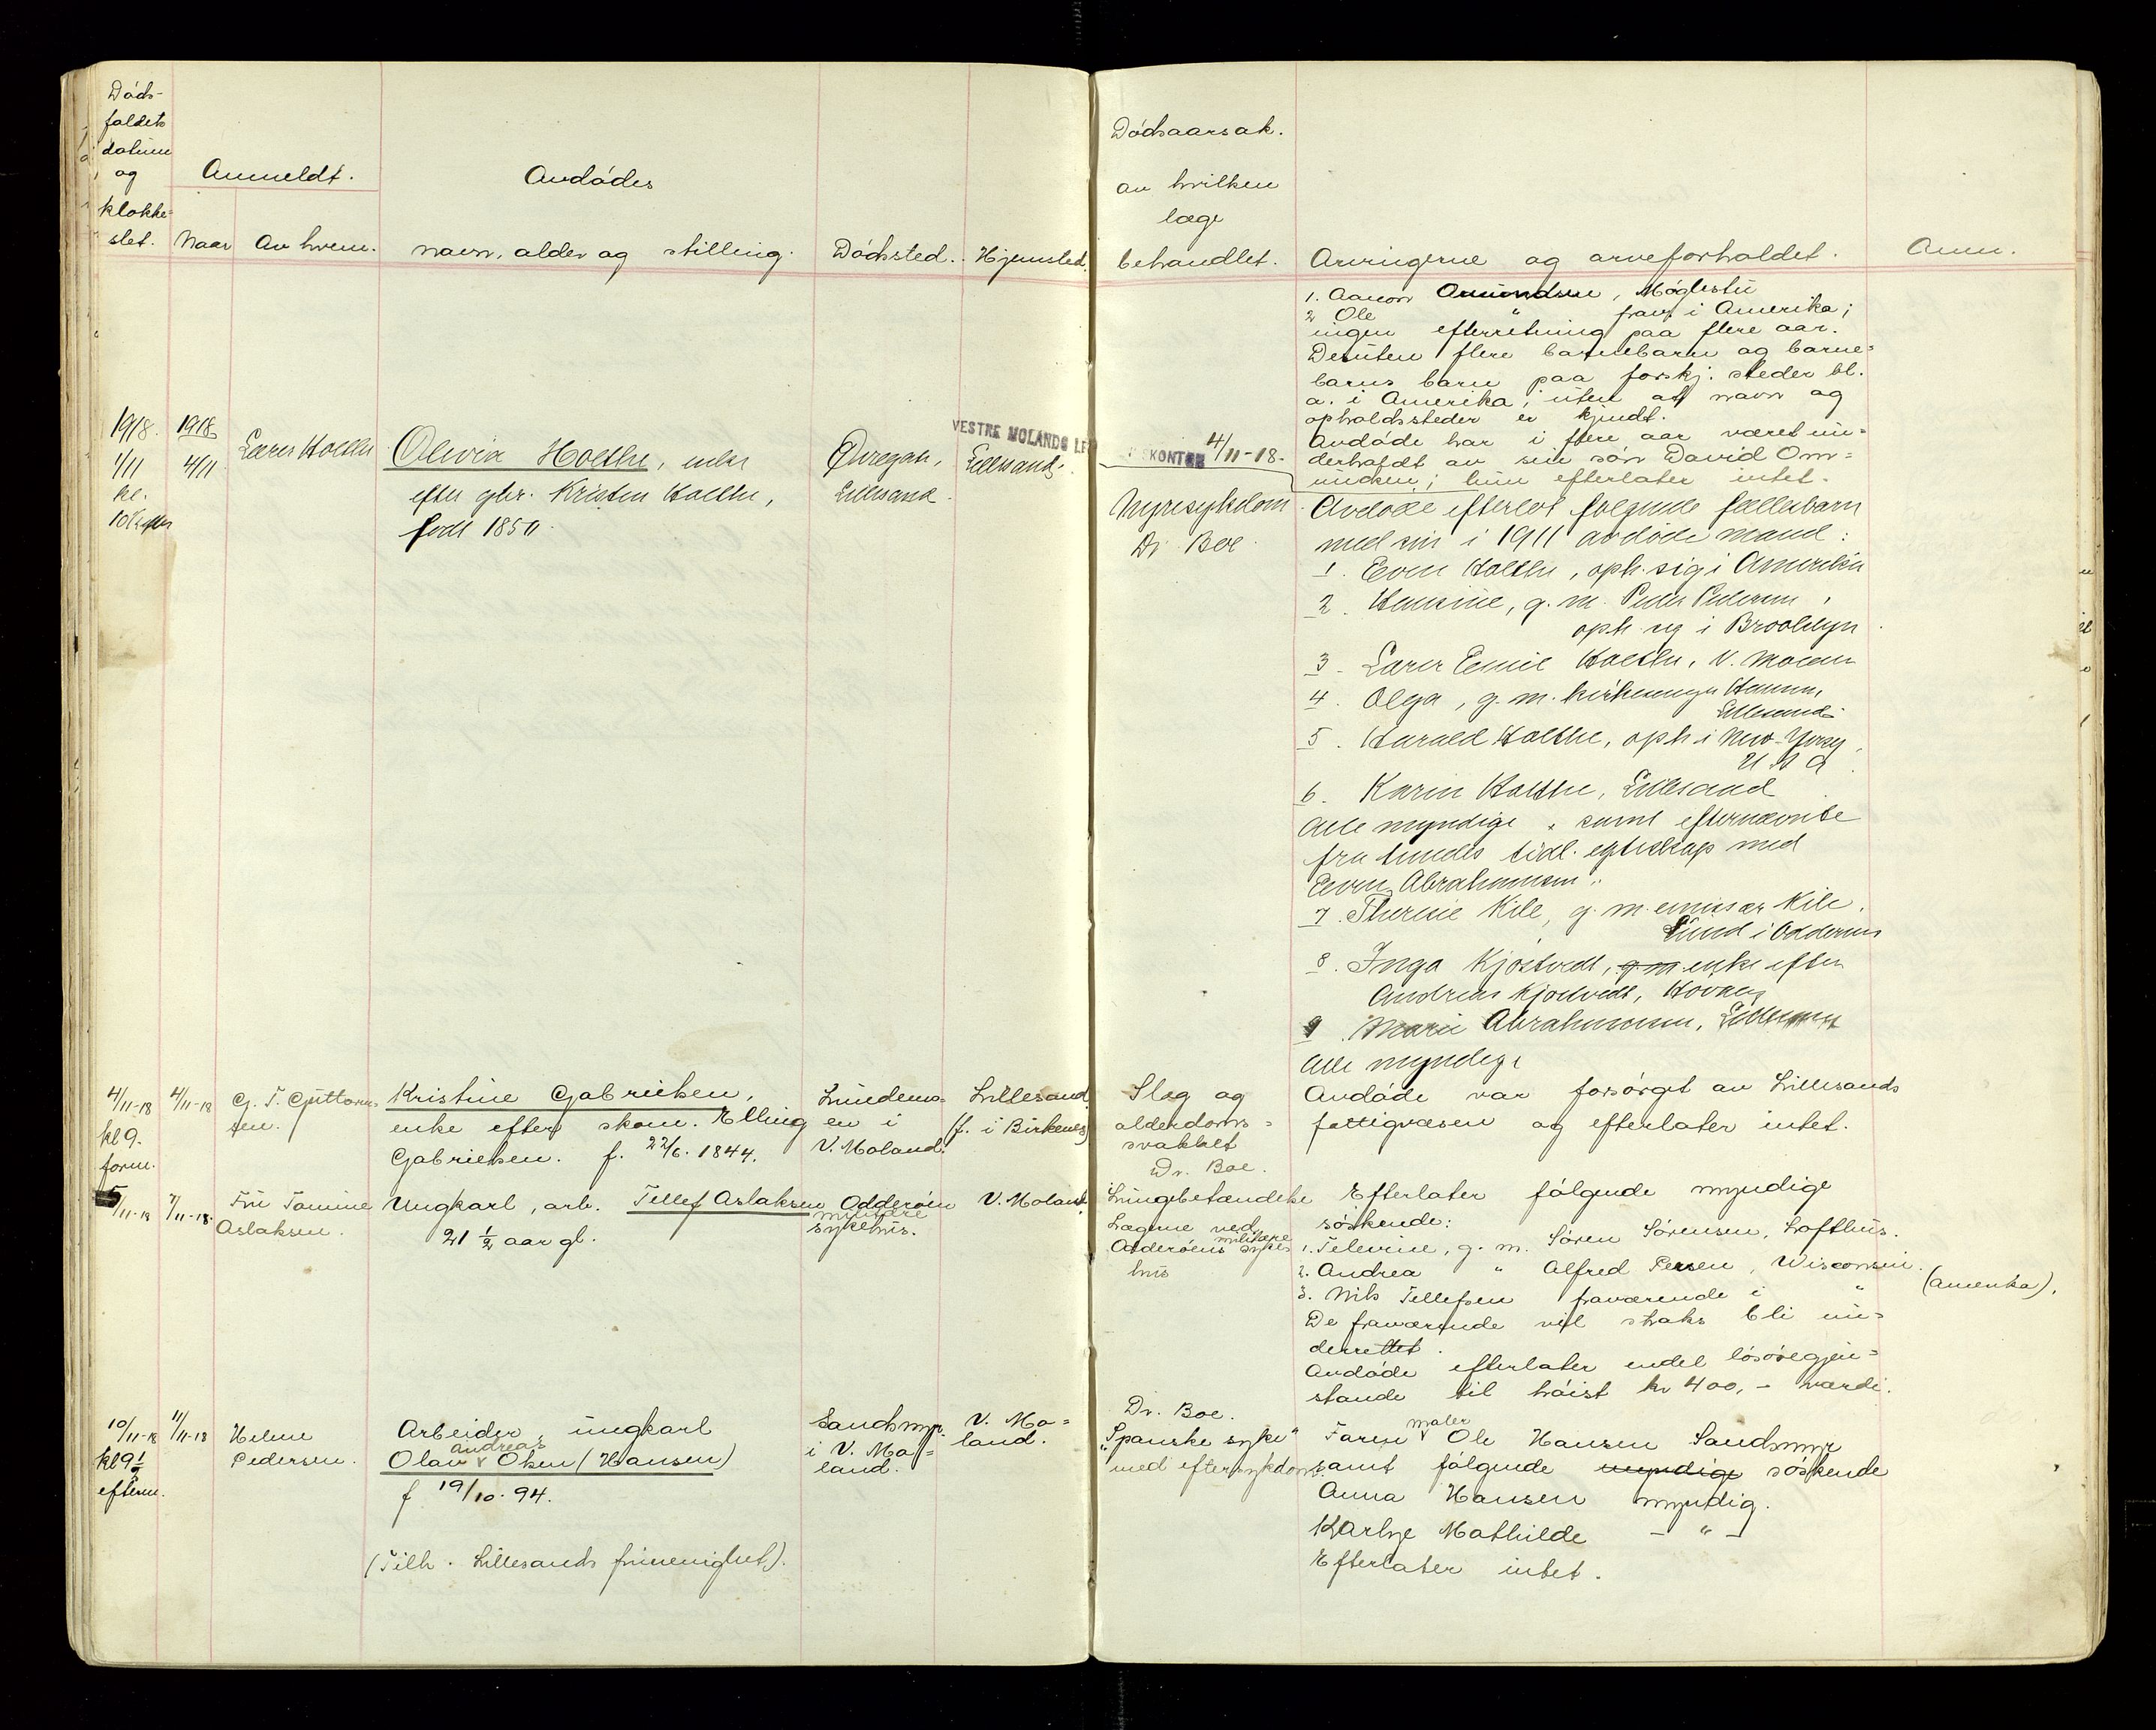 Døds-
faldets
datum
og
klokke-
slet.
Anmeldt.
Naar
Av hvem.
Avdødes
navn, alder og stilling.
Dødssted.
Hjemsted.
Dødsaarsak.
av hvilken
læge
behandlet.
Arvingerne og arveforholdet.
Anm.
1. Aanon Omundsen, Møglestu
2 Ole " frav. i Amerika;
ingen efterretning paa flere aar.
Desuten flere barnebarn og barne-
barns barn paa forskj. steder bl.
a. i Amerika, uten at navn og
opholdssteder er kjendt.
Avdøde har i flere aar været un-
derholdt av sin søn David Om-
undsen; hun efterlater intet.
VESTRE MOLANDS LE
SKONTOR 4/11-18.
1918.
1/11
kl.
1918
4/11
Lars Holthe
Olivia Holthe, enke
efter gbr. Kristen Holthe,
født 1850.
Lillesand.
Lillesand.
Nyresykdom
Dr Boe
Avdøde efterlot følgende fællesbarn
med sin i 1911 avdøde mand:
1. Even Holthe, oph. sig i Amerika
2. Hansine, g. m. Peder Pedersen,
oph. sig i Brooklyn.
3. Lars Emil Holthe, V. Moland
4. Olga, g. m. kirkesanger Hansen,
Lillesand.
5. Harald Holthe, oph i New-Yersy,
U S A.
6. Karin Holthe, Lillesand
Alle myndige, samt efternævnte
fra hendes tidl. egteskap med
Even Abrahamsen:
7. Theresie Kile, g. m. emissær Kile,
Lund i Oddernes
8. Inga Kjøstvedt, g m enke efter
Andreas Kjøstvedt, Høvåg
9. Marie Abrahamsen, Lillesand
Alle myndige
4/11-18
kl 9.
form.
4/11-18
G. T. Guttorm-
sen.
Kristine Gabrielsen,
enke efter skom. Elling
Gabrielsen. f. 22/6. 1844.
Lundemo-
en i
V. Moland.
Lillesand
(f. i Birkenes)
Slag og
alderdoms-
svakhet
Dr. Boe.
Avdøde var forsørget av Lillesands
fattigvæsen og efterlater intet.
5/11-18
7/11-18.
Fru Tomine
Aslaksen.
Ungkarl, arb. Tellef Aslaksen
21 1/2 aar gl.
Odderøen
sykehus.
V. Moland.
Lungebetændelse
Lægerne ved
Odderøens militære sykes
hus
Efterlater følgende myndige
søskende:
1. Televine, g. m. Søren Sørensen, Lofthus.
2. Andrea " Alfred Persen, Wisconsin.
3. Nils Tellefsen fraværende i " (Amerika).
De fraværende vil straks bli un-
derrettet.
Avdøde efterlater endel løsøregjen-
stande til høist kr 400,- værdi.
10/11-18
kl 9 1/2
efterm.
11/11-18
Helene
Pedersen.
Arbeider, ungkarl
Olav Andreas Olsen (Hansen)
f 19/10. 94.
(Tilh. Lillesands frimenighet).
Sandsmyr
i V. Mo-
land.
V. Mo-
land.
Dr. Boe.
"Spanske syke"
med eftersykdom.
Faren maler Ole Hansen Sandsmyr
samt følgende myndige søskende
Anna Hansen myndig.
Mathilde - " -
Efterlater intet.